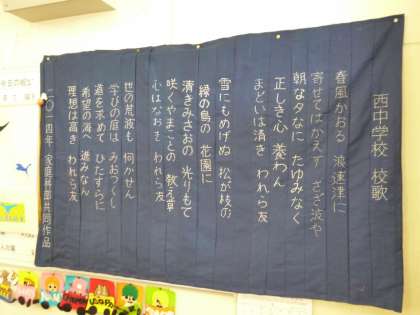 西中学校 校歌
春風かおる 浪速津に
寄せてはかえす さざ波や
朝な夕なに たゆみなく
正しき心 養わん
まどいは清き われら友
雪にもめげぬ 松が枝の
緑の島の 花園に
清きみさおの 光りもて
咲くやまことの 教え草
心はなおき われら友
世の荒波も 何かせん
学びの庭は みおつくし
道を求めて ひたすらに
希望の海へ 進みなん
理想は高き われら友
二〇一四年 家庭科部共同作品